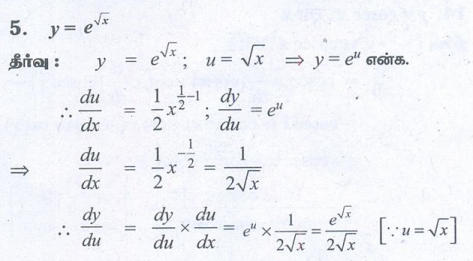 5. y = e^{√x}
தீர்வு : y = e^{√x} ; u = √x ⇒ y = e^u என்க.
∴ du/dx = 1/2 x^{1/2 - 1} ; dy/du = e^u
⇒ du/dx = 1/2 x^{-1/2} = 1/(2√x)
∴ dy/du = dy/du × du/dx = e^u × 1/(2√x) = e^{√x}/(2√x) [∵ u = √x]